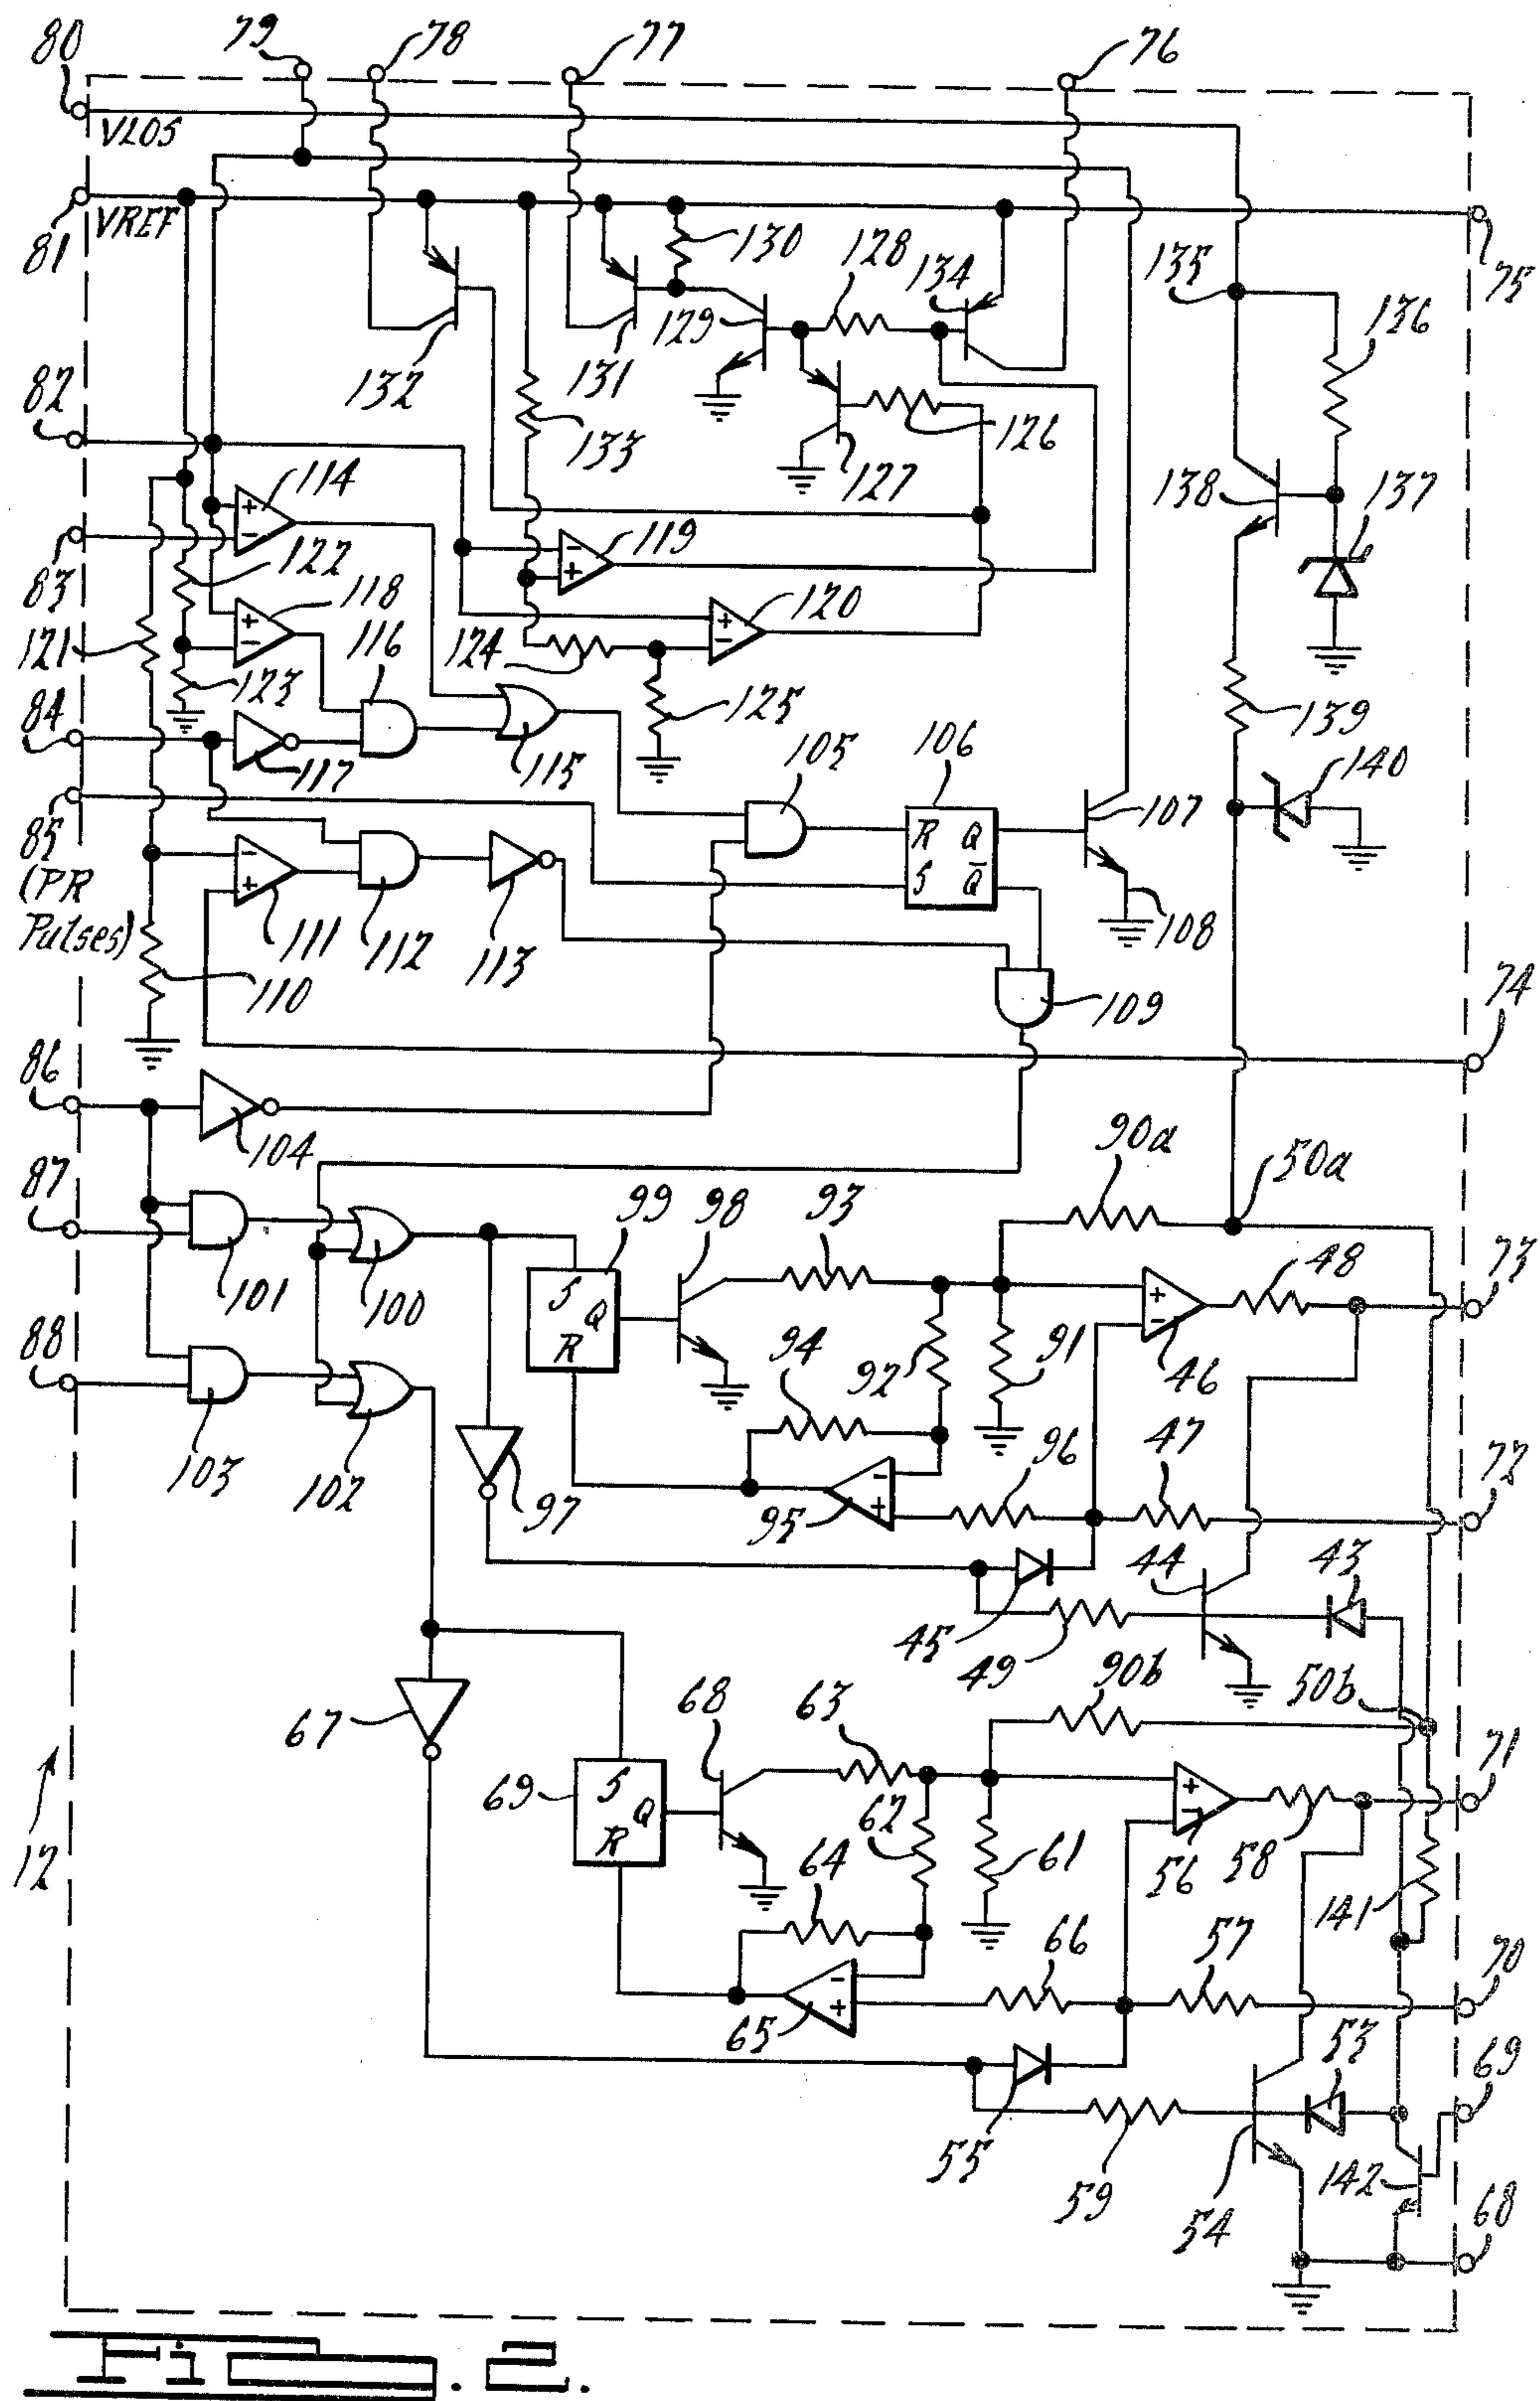 80
79
78
77
76
VLOS
81
VREF
75
130
128
134
135
136
129
132
131
82
133
126
127
138
137
114
119
83
122
118
120
121
116
124
123
125
139
84
117
115
105
106
140
85
(PR
Pulses)
R Q
S Q̅
107
111
112
113
108
110
109
74
86
104
90a
50a
87
99
98
93
48
73
101
100
S
Q
R
88
94
92
91
46
103
102
97
95
96
47
72
44
43
45
49
90b
50b
67
68
63
71
69
S
Q
R
62
61
56
58
12
64
141
66
57
70
65
53
69
55
59
54
142
68
+
-
+
-
-
+
+
-
-
+
+
-
-
+
+
-
-
+
Fig. 2.